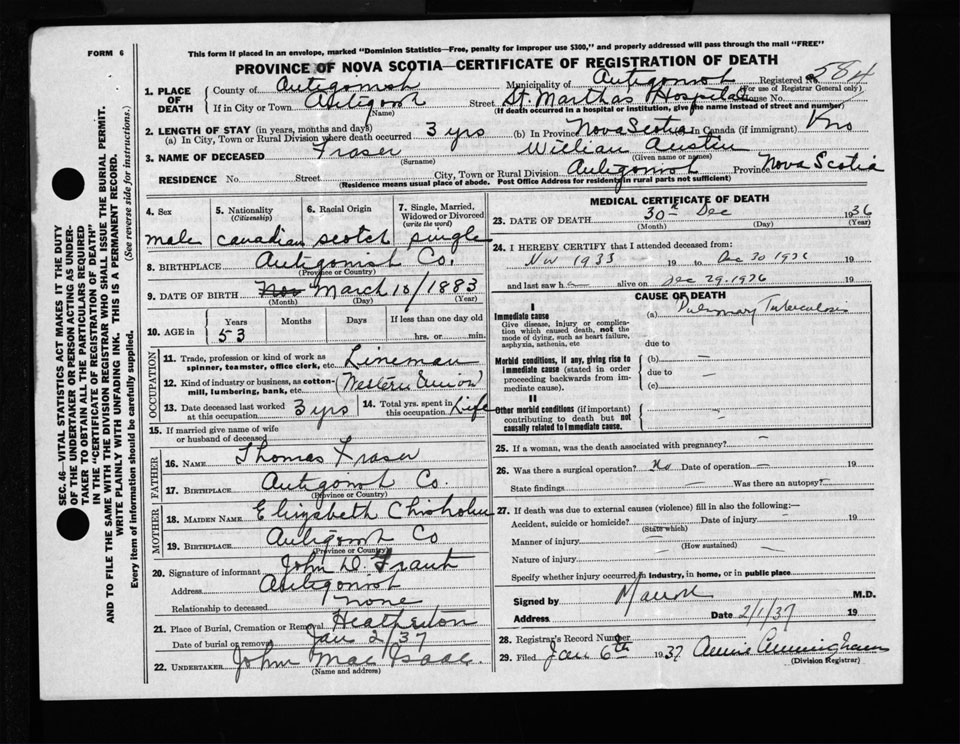 FORM 6
This form if placed in an envelope, marked "Dominion Statistics—Free, penalty for improper use $300," and properly addressed will pass through the mail "FREE"
PROVINCE OF NOVA SCOTIA—CERTIFICATE OF REGISTRATION OF DEATH
Registered No. 584
(For use of Registrar General only)
1. PLACE OF DEATH
County of Antigonish Municipality of Antigonish
If in City or Town Antigonish Street St. Marthas Hospital House No.
(Name) (If death occurred in a hospital or institution, give the name instead of street and number)
2. LENGTH OF STAY (in years, months and days)
(a) In City, Town or Rural Division where death occurred 3 yrs (b) In Province Nova Scotia In Canada (if immigrant)
3. NAME OF DECEASED Fraser William Austin
(Surname) (Given name or names)
RESIDENCE No. Street City, Town or Rural Division Antigonish Province Nova Scotia
(Residence means usual place of abode. Post Office Address for residents in rural parts not sufficient)
4. Sex 5. Nationality (Citizenship) 6. Racial Origin 7. Single, Married, Widowed or Divorced (write the word)
male canadian scotch single
8. BIRTHPLACE Antigonish Co.
(Province or County)
9. DATE OF BIRTH Nov March 10/1883
(Month) (Day) (Year)
10. AGE in Years Months Days If less than one day old
53 hrs. or min.
OCCUPATION
11. Trade, profession or kind of work as spinner, teamster, office clerk, etc. Lineman
12. Kind of industry or business, as cotton-mill, lumbering, bank, etc. (Western Union)
13. Date deceased last worked at this occupation 3 yrs 14. Total yrs. spent in this occupation Life
15. If married give name of wife or husband of deceased
FATHER
16. NAME Thomas Fraser
17. BIRTHPLACE Antigonish Co.
(Province or Country)
MOTHER
18. MAIDEN NAME Elizabeth Chisholm
19. BIRTHPLACE Antigonish Co
(Province or Country)
20. Signature of informant John D. Grant
Address Antigonish
Relationship to deceased none
21. Place of Burial, Cremation or Removal Heatherton
Date of burial or removal Jan 2/37
22. UNDERTAKER John MacIsaac.
(Name and address)
MEDICAL CERTIFICATE OF DEATH
23. DATE OF DEATH 30th Dec 1936
(Month) (Day) (Year)
24. I HEREBY CERTIFY that I attended deceased from:
Nov 1933 19 to Dec 30 1936 19
and last saw h alive on Dec 29. 1936 19
CAUSE OF DEATH
I
Immediate cause
Give disease, injury or complication which caused death, not the mode of dying, such as heart failure, asphyxia, asthenia, etc
(a) Pulmonary Tuberculosis
due to
Morbid conditions, if any, giving rise to immediate cause (stated in order proceeding backwards from immediate cause).
(b) —
due to —
(c)
II
Other morbid conditions (if important) contributing to death but not causally related to immediate cause.
25. If a woman, was the death associated with pregnancy? —
26. Was there a surgical operation? No Date of operation — 19
State findings — Was there an autopsy? —
27. If death was due to external causes (violence) fill in also the following:—
Accident, suicide or homicide? Date of injury — 19
(State which)
Manner of injury —
(How sustained)
Nature of injury —
Specify whether injury occurred in industry, in home, or in public place
Signed by M.D.
Address Date 2/1/37 19
28. Registrar's Record Number
29. Filed Jan 6th 1937 Annie Cunningham
(Division Registrar)
SEC. 46—VITAL STATISTICS ACT MAKES IT THE DUTY
OF THE UNDERTAKER OR PERSON ACTING AS UNDER-
TAKER TO OBTAIN ALL THE PARTICULARS REQUIRED
IN THE "CERTIFICATE OF REGISTRATION OF DEATH"
AND TO FILE THE SAME WITH THE DIVISION REGISTRAR WHO SHALL ISSUE THE BURIAL PERMIT.
WRITE PLAINLY WITH UNFADING INK. THIS IS A PERMANENT RECORD.
Every item of information should be carefully supplied. (See reverse side for instructions.)